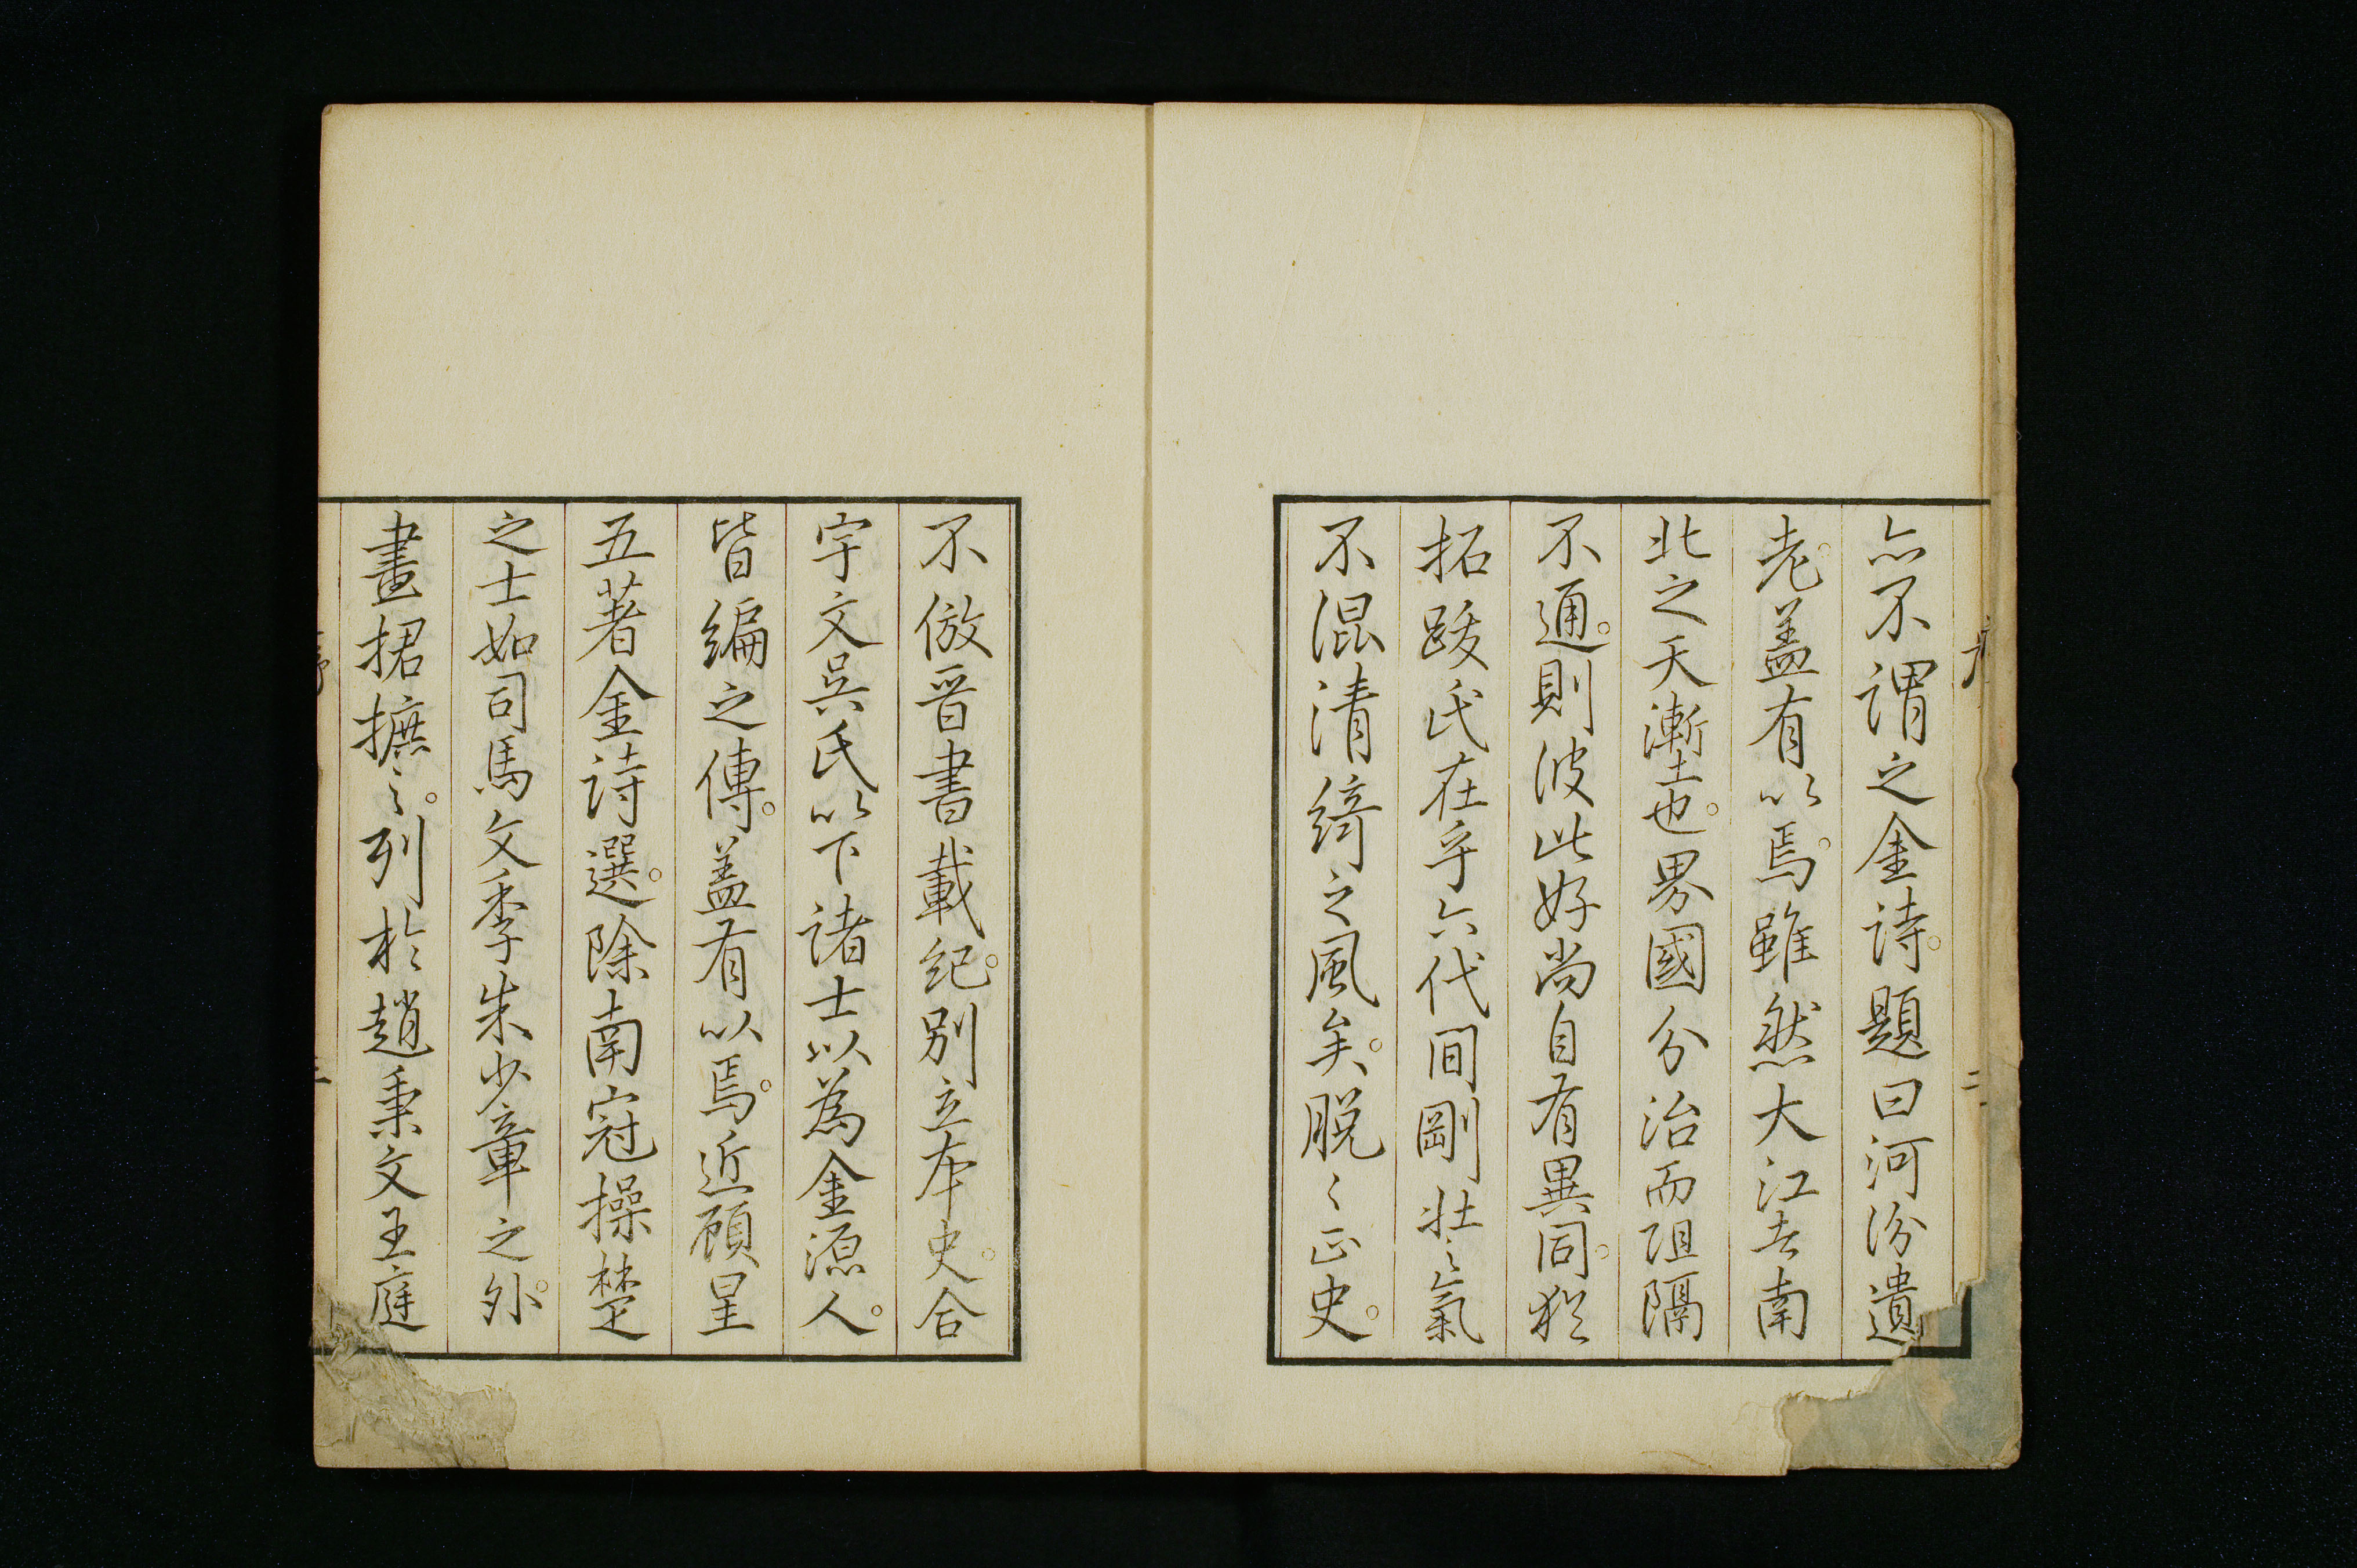 亦不謂之金詩。題曰河汾遺
老。盖有以焉。雖然大江去南
北之天塹也。界國分治而阻隔
不通。則彼此好尚自有異同。猶
拓跋氏在乎六代間剛壯之氣
不混清綺之風矣。脱之正史。
不倣晉書載紀。別立本史。合
宇文吳氏以下諸士以為金源人。
皆編之傳。盖有以焉。近顧星
五著金詩選。除南冠操楚
之士如司馬文季朱少章之外。
畫捃摭之。列於趙秉文王庭